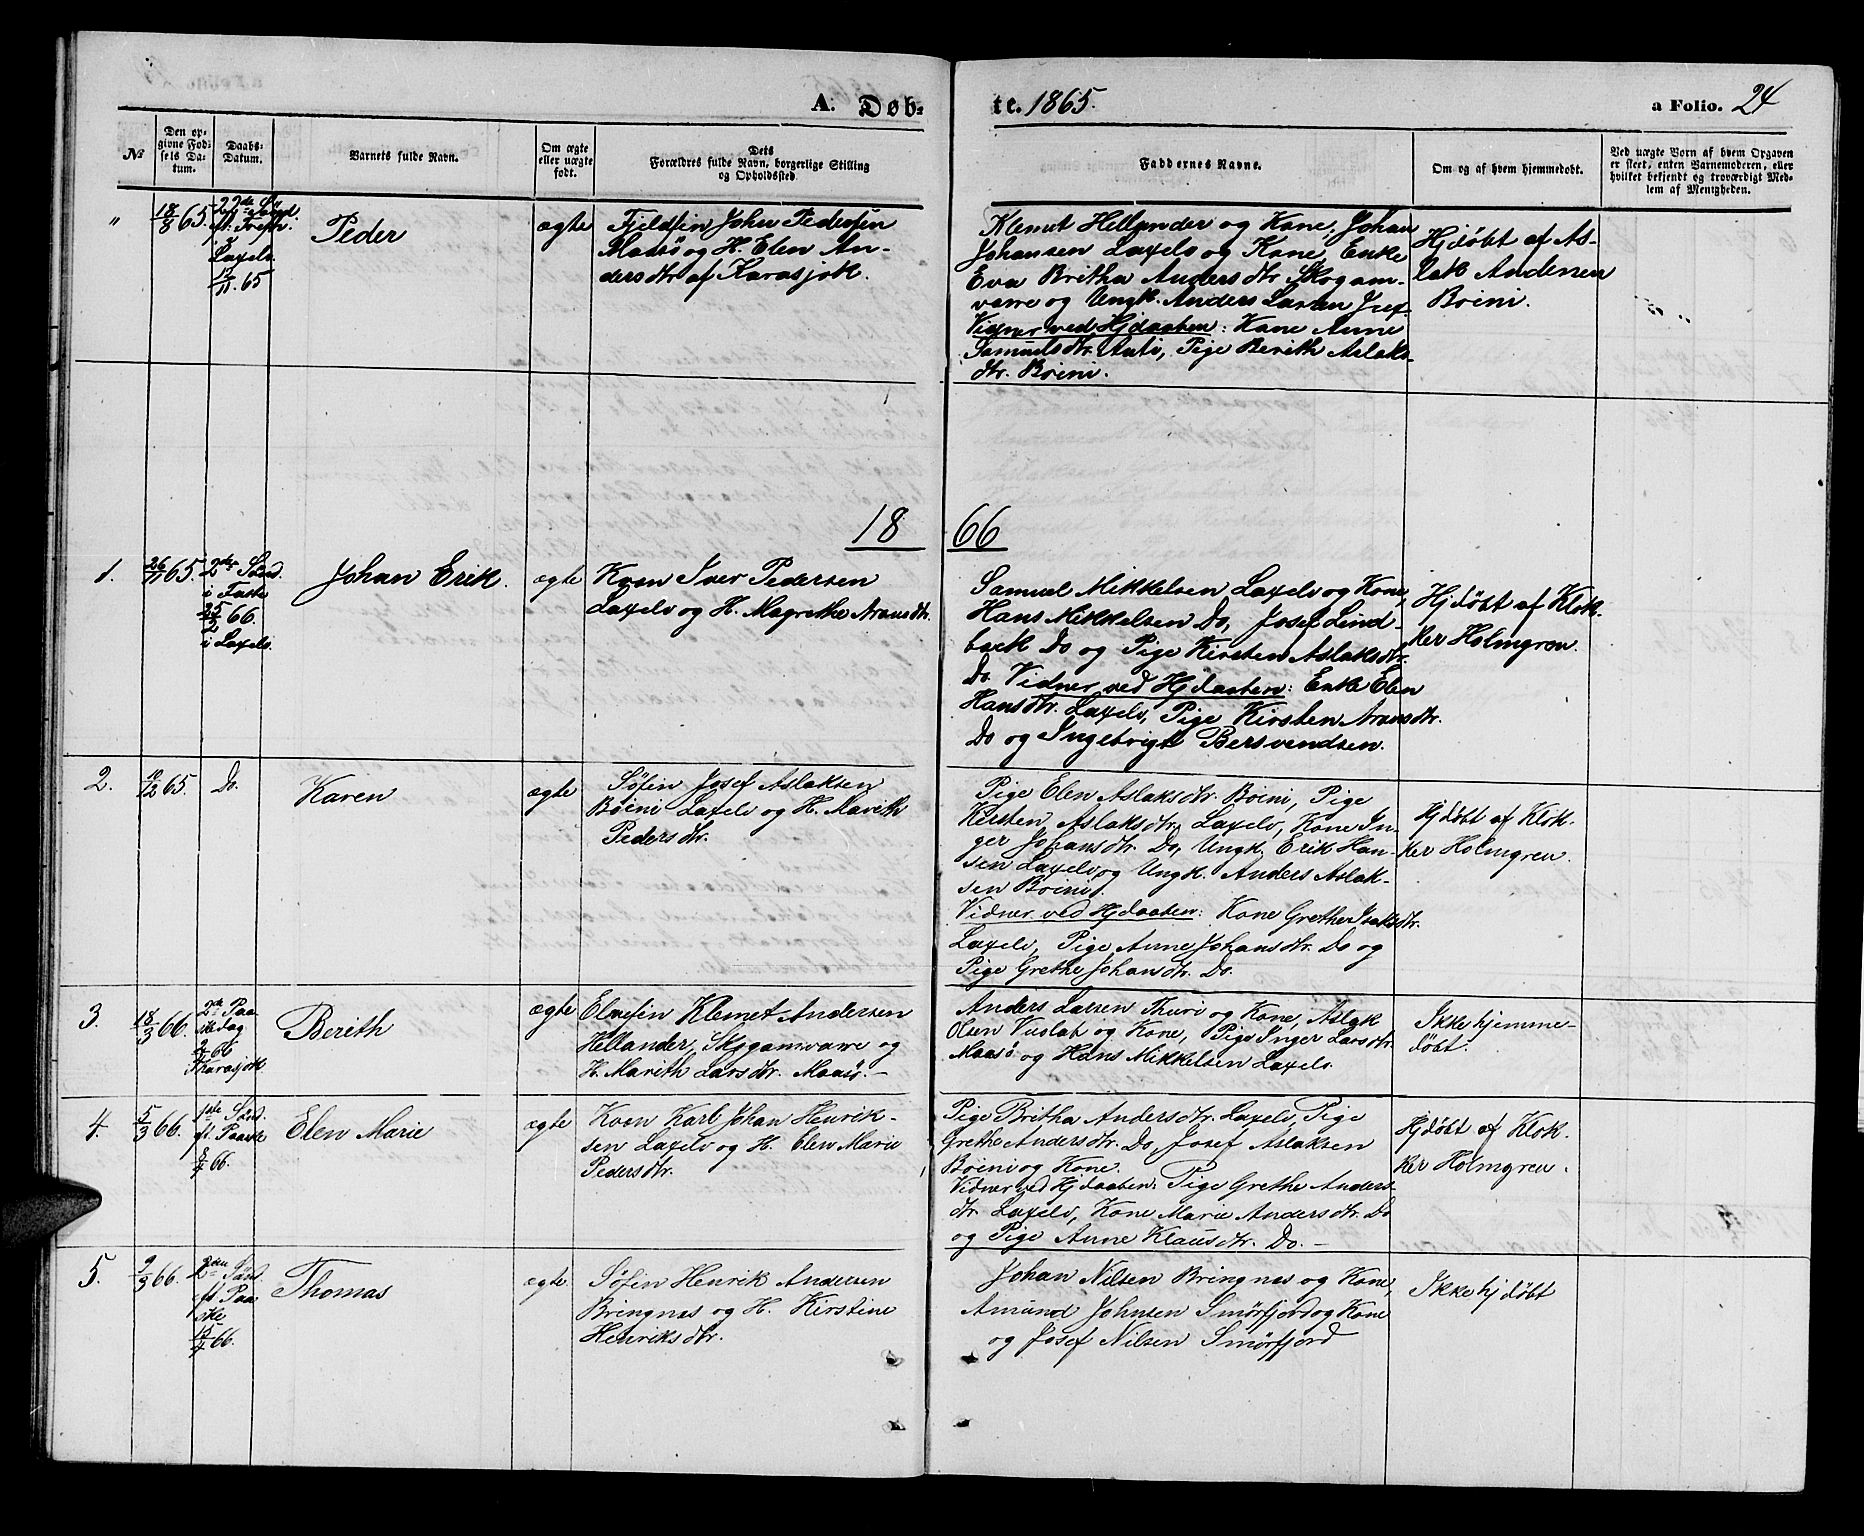 A. Døb-
te. 1865.
a Folio. 24
№
Den op-
givne Fød-
sels Da-
tum.
Daabs-
Datum.
Barnets fulde Navn.
Om ægte
eller uægte
født.
Dets
Forældres fulde Navn, borgerlige Stilling
og Opholdssted.
Faddernes Navne.
Om og af hvem hjemmedøbt.
Ved uægte Børn af hvem Opgaven
er skeet, enten Barnemoderen, eller
hvilket bekjendt og troværdigt Med-
lem af Menigheden.
"
18/8 65.
22de Sø
ft. Trefh.
Laxelv.
12/11. 65
Peder
ægte
Fjeldfin Joher Pedersen
Maasø og H. Elen An-
dersdtr. af Karasjok.
Klemet Hellander og Kone, Johan
Johansen Laxelv og Kone, Enke
Eva Britha Andersdtr Skogam-
varre og Ungk. Anders Larsen
Vidner ved Hjdaaben: Kone Anne
Samuelsdtr. Anti, Pige Berith Aslaks-
dtr. Boini.
Hjdøbt af As-
lak Andersen
Boini.
18 66
1.
26/11 65.
2den Sønd.
i Faste
25/2 66.
i Laxelv.
Johan Erik.
ægte
Kvæn Iver Pedersen
Laxelv og H. Magrethe Aransdtr.
Samuel Mikkelsen Laxelv og Kone,
Hans Mikkelsen Do, Josef Lind-
bæck Do og Pige Kirsten Aslaksdtr.
Do. Vidner ved Hjdaaben: Enke Elen
Hansdtr. Laxelv, Pige Kirsten Aransdtr.
Do og Ingebrigt Bersvendsen.
Hjdøbt af Klok-
ker Holmgren.
2.
10/12 65.
Do.
Karen
ægte
Søfin Josef Aslaksen
Boini Laxelv og H. Marith
Pedersdtr.
Pige Elen Aslaksdtr. Boini, Pige
Kirsten Aslaksdtr. Laxelv, Kone In-
ger Johansdtr. Do, Ungk. Erik Han-
sen Laxelv og Ungk. Anders Aslak-
sen Boini.
Vidner ved Hjdaaben: Kone Grethe Isaksdtr.
Laxelv, Pige Anne Johansdtr. Do og
Pige Grethe Johansdtr. Do.
Hjdøbt af Klok-
ker Holmgren.
3.
18/3 66.
2de Paa
skedag
2/4 66
Karasjok
Berith
ægte
Elvefin Klemet Andersen
Hellander, Skogamvarre og
H. Marith Larsdtr. Maasø. -
Anders Larsen Thuri og Kone, Aslak
Olsen Vuolab og Kone, Pige Inger Larsdtr.
Maasø og Hans Mikkelsen Laxelv.
Ikke hjemme-
døbt.
4.
5/3 66.
1ste Sønd.
ft. Paaske
8/4 66.
Elen Marie
ægte
Kvæn Karl Johan Henrik-
sen Laxelv og H. Elen Marie
Pedersdtr.
Pige Britha Andersdtr. Laxelv, Pige
Grethe Andersdtr. Do, Josef Aslaksen
Boini og Kone.
Vidner ved Hjdaaben: Pige Grethe Anders-
dtr. Laxelv, Kone Marie Andersdtr. Do
og Pige Anne Klausdtr. Do. -
Hjdøbt af Klok-
ker Holmgren.
5.
9/3 66.
2den Sønd.
eft. Paa
ske
15/4 66.
Thomas
ægte
Søfin Henrik Andersen
Bringnæs og H. Kirstine
Henriksdtr.
Johan Nilsen Bringnæs og Kone,
Amund Johnsen Smørfjord og Kone
og Josef Nilsen Smørfjord
Ikke hjdøbt